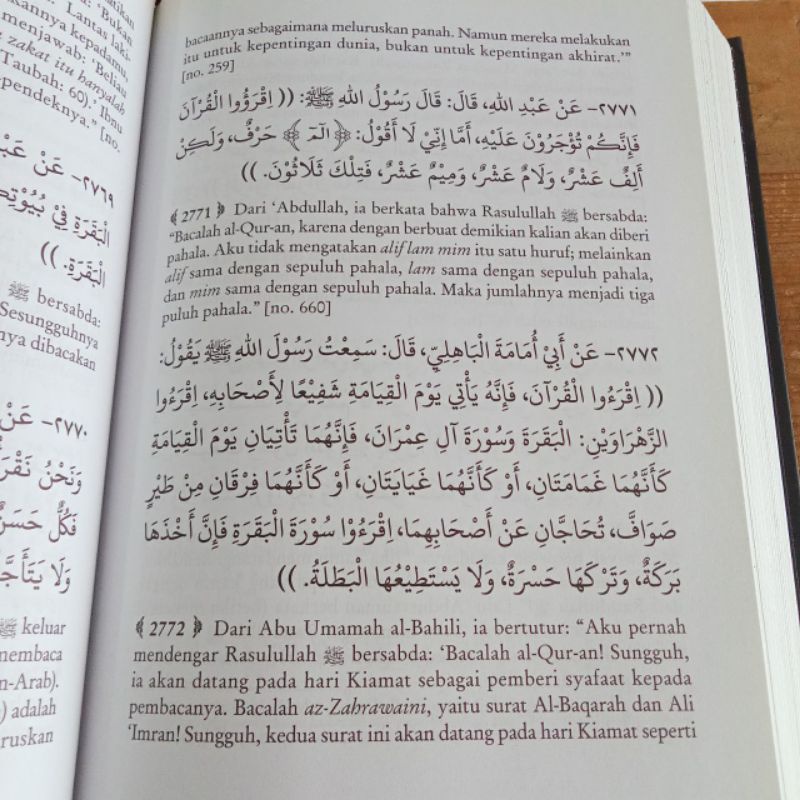 atikan
a: 'Bukan
kannya kepadamu,
Lantas laki-
menjawab: 'Belian
zakat itu hanyalah
Taubah: 60).' Ibnu
pendeknya." [no.
٢٧٦٩- عَنْ
الْبَقَرَةِ فِيْ
الْبَقَرَةِ. ))
ﷺ bersabda:
Sesungguhnya
nya dibacakan
٢٧٧٠- عَنْ
وَنَحْنُ
فَكُلٌّ حَسَنٌ
ﷺ keluar
membaca
n-Arab).
) adalah
ruskan
bacaannya sebagaimana meluruskan panah. Namun mereka melakukan
itu untuk kepentingan dunia, bukan untuk kepentingan akhirat.'"
[no. 259]
٢٧٧١- عَنْ عَبْدِ اللهِ، قَالَ: قَالَ رَسُوْلُ اللهِ ﷺ: (( اِقْرَؤُوا الْقُرْآنَ
فَإِنَّكُمْ تُؤْجَرُوْنَ عَلَيْهِ، أَمَا إِنِّيْ لَا أَقُوْلُ: ﴿ الٓمٓ ﴾ حَرْفٌ، وَلَكِنْ
أَلِفٌ عَشْرٌ، وَلَامٌ عَشْرٌ، وَمِيْمٌ عَشْرٌ، فَتِلْكَ ثَلَاثُوْنَ. ))
﴾2771﴿ Dari 'Abdullah, ia berkata bahwa Rasulullah ﷺ bersabda:
"Bacalah al-Qur-an, karena dengan berbuat demikian kalian akan diberi
pahala. Aku tidak mengatakan alif lam mim itu satu huruf; melainkan
alif sama dengan sepuluh pahala, lam sama dengan sepuluh pahala,
dan mim sama dengan sepuluh pahala. Maka jumlahnya menjadi tiga
puluh pahala." [no. 660]
٢٧٧٢- عَنْ أَبِيْ أُمَامَةَ الْبَاهِلِيِّ، قَالَ: سَمِعْتُ رَسُوْلَ اللهِ ﷺ يَقُوْلُ:
(( اِقْرَءُوا الْقُرْآنَ، فَإِنَّهُ يَأْتِي يَوْمَ الْقِيَامَةِ شَفِيْعًا لِأَصْحَابِهِ، اِقْرَءُوا
الزَّهْرَاوَيْنِ: الْبَقَرَةَ وَسُوْرَةَ آلِ عِمْرَانَ، فَإِنَّهُمَا تَأْتِيَانِ يَوْمَ الْقِيَامَةِ
كَأَنَّهُمَا غَمَامَتَانِ، أَوْ كَأَنَّهُمَا غَيَايَتَانِ، أَوْ كَأَنَّهُمَا فِرْقَانِ مِنْ طَيْرٍ
صَوَافَّ، تُحَاجَّانِ عَنْ أَصْحَابِهِمَا، اِقْرَءُوْا سُوْرَةَ الْبَقَرَةِ فَإِنَّ أَخْذَهَا
بَرَكَةٌ، وَتَرْكَهَا حَسْرَةٌ، وَلَا يَسْتَطِيْعُهَا الْبَطَلَةُ. ))
﴾2772﴿ Dari Abu Umamah al-Bahili, ia bertutur: "Aku pernah
mendengar Rasulullah ﷺ bersabda: 'Bacalah al-Qur-an! Sungguh,
ia akan datang pada hari Kiamat sebagai pemberi syafaat kepada
pembacanya. Bacalah az-Zahrawaini, yaitu surat Al-Baqarah dan Ali
'Imran! Sungguh, kedua surat ini akan datang pada hari Kiamat seperti